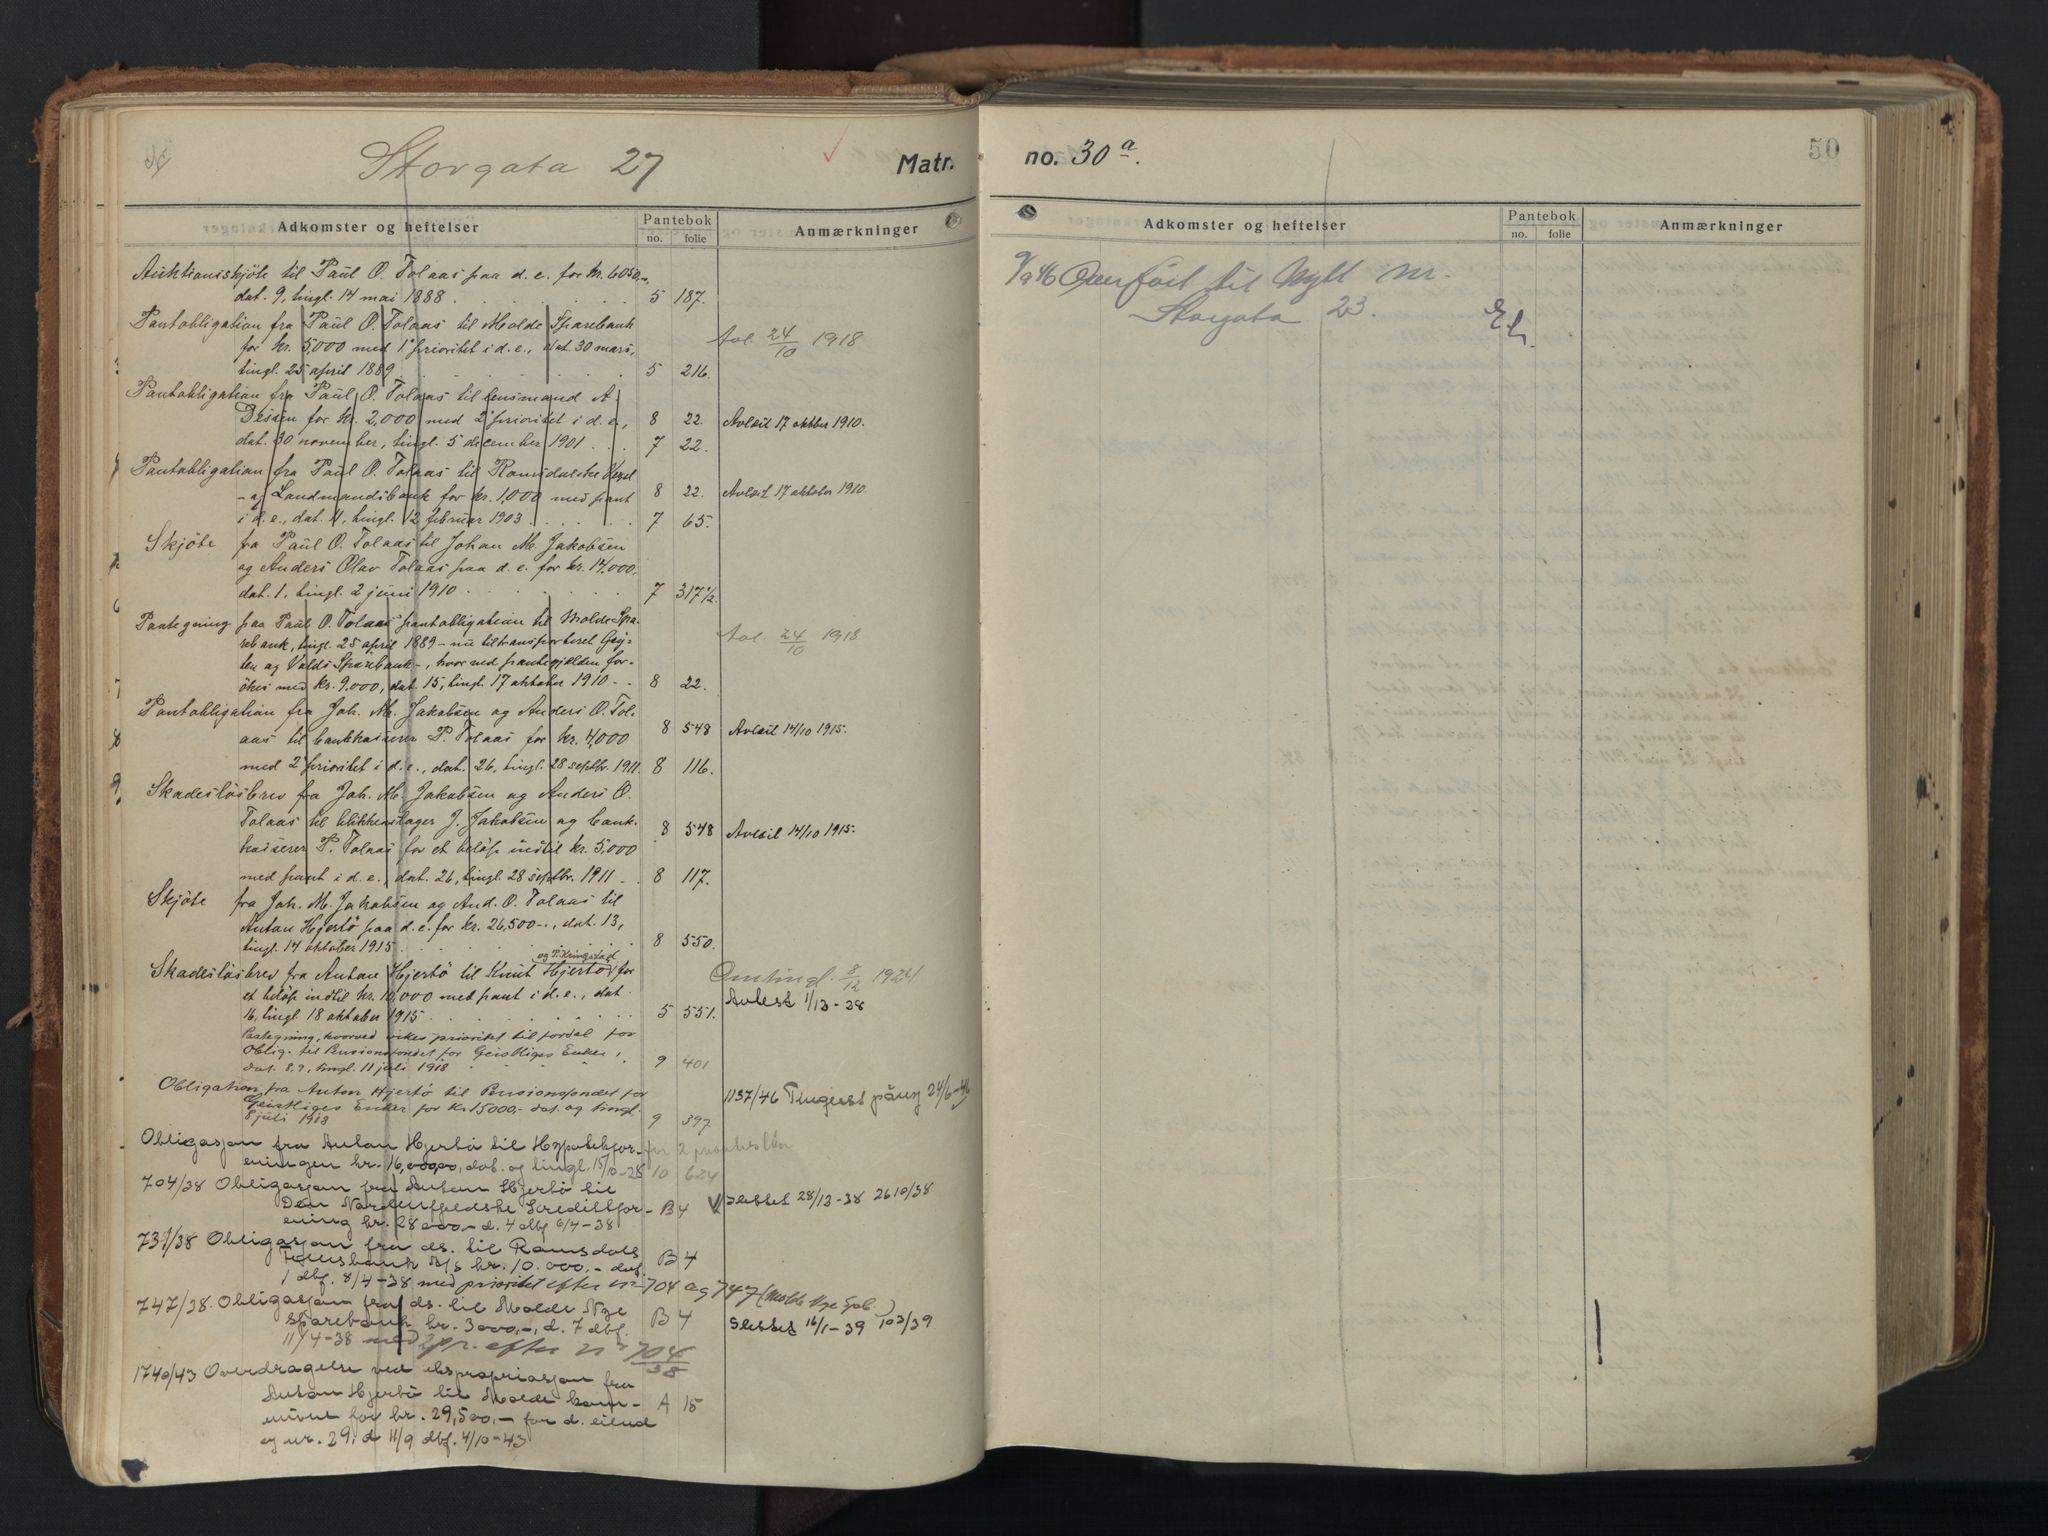 Storgata 27
Matr.
Adkomster og heftelser
Pantebok
no. folie
Anmærkninger
Auktionsskjöte til Paul O. Tolaas paa d. e. for kr. 6050,-,
dat. 9, tingl. 14 mai 1888 5 187.
Pantobligation fra Paul O. Tolaas til Molde Sparebank
for kr. 5,000 med 1' prioritet i d. e., dat. 30 mars,
tingl. 25 april 1889 5 216.
Avl. 24/10 1918
Pantobligation fra Paul O. Tolaas til lensmand A
Dessen for kr. 2,000 med 2' prioritet i d. e., 8 22. Avlest 17 oktber 1910.
dat. 30 november, tingl. 5 december 1901 7 22.
Pantobligation fra Paul O. Tolaas til Romsdalske Vexel
- og Landmandsbank for kr. 1,000 med pant 8 22. Avlest 17 oktober 1910.
i d. e., dat. 11, tingl. 12 februar 1903 7 65.
Skjöte fra Paul O. Tolaas til Johan M. Jakobsen
og Anders Olav Tolaas paa d. e. for kr. 14,000,
dat. 1, tingl. 2 juni 1910 7 317½.
Paategning paa Paul O. Tolaas' pantobligation til Molde Spa-
rebank, tingl. 25 april 1889 - nu tiltransporteret Grip-
ten og Volds Sparebank -, hvorved pantegjælden for-
økes med kr. 9,000, dat. 15, tingl. 17 oktober 1910 8 22.
Avl. 24/10 1918
Pantobligation fra Joh. M. Jakobsen og Anders O. Tol-
aas til bankkasserer P. Tolaas for kr. 4,000 8 548 Avlest 14/10 1915.
med 2' prioritet i d. e., dat. 26, tingl. 28 septbr. 1911 8 116.
Skadeslösbrev fra Joh. M. Jakobsen og Anders O.
Tolaas til blikkenslager J. Jakobsen og bank- 8 548 Avlest 14/10 1915.
kasserer P. Tolaas for et belöp indtil kr. 5,000
med pant i d. e., dat. 26, tingl. 28 septbr. 1911 8 117.
Skjöte fra Joh. M. Jakobsen og And. O. Tolaas til
Anton Hjertö paa d. e. for kr. 26,500-., dat. 13,
tingl. 14 oktober 1915 8 550.
og P. Kringstad
Skadeslösbrev fra Anton Hjertö til Knut Hjertö for
et belöp indtil kr. 10,000 med pant i d. e., dat.
16, tingl. 18 oktober 1915 5 551.
Omtingl. 8/12 1924
Avlest 1/12-38
Paategning, hvorved vikes prioritet til fordel for
Oblig. til Pensionsfondet for Geistliges Enker,
dat. 8.9, tingl. 11 juli 1918 9 401
Obligation fra Anton Hjertö til Pensionsfondet for
Geistliges Enker for kr 15000,- dat. og tingl.
8 juli 1918 9 397
1137/46 Tinglest påny 24/6-46
Obligasjon fra Anton Hjertö til Hypotekfor-
eningen kr. 16,000,00, dat. og tingl. 15/10-28 10 624
704/38 Obligasjon fra Anton Hjertö til
Den Nordenfjeldske Kreditfor- B 4 Slettet 28/12-38 2610/38
ening kr. 28 000,- d. 4 dbf 6/4-38
731/38 Obligasjon fra ds. til Romsdals
Fellesbank A/s kr. 10.000,- dat. B 4
1 dbf. 8/4-38 med prioritet efter nr 704 og 747 (Molde Nye Spb.)
747/38. Obligasjon fra ds. til Molde Nye
Sparebank kr. 3000,-, d. 7 dbf. B 4 Slettet 16/1-39 103/39
11/4-38 med pr. efter nr 704/38
1740/43 Overdragelse ved ekspropriasjon fra
Anton Hjertö til Molde kom- A 15
mune for kr. 29,500,- for d. eiend
og nr. 29, d 11/9 dbf. 4/10-43
no. 30 a.
50
Adkomster og heftelser
Pantebok
no. folie
Anmærkninger
9/9 46 Overført til Nytt nr.
Storgata 23.